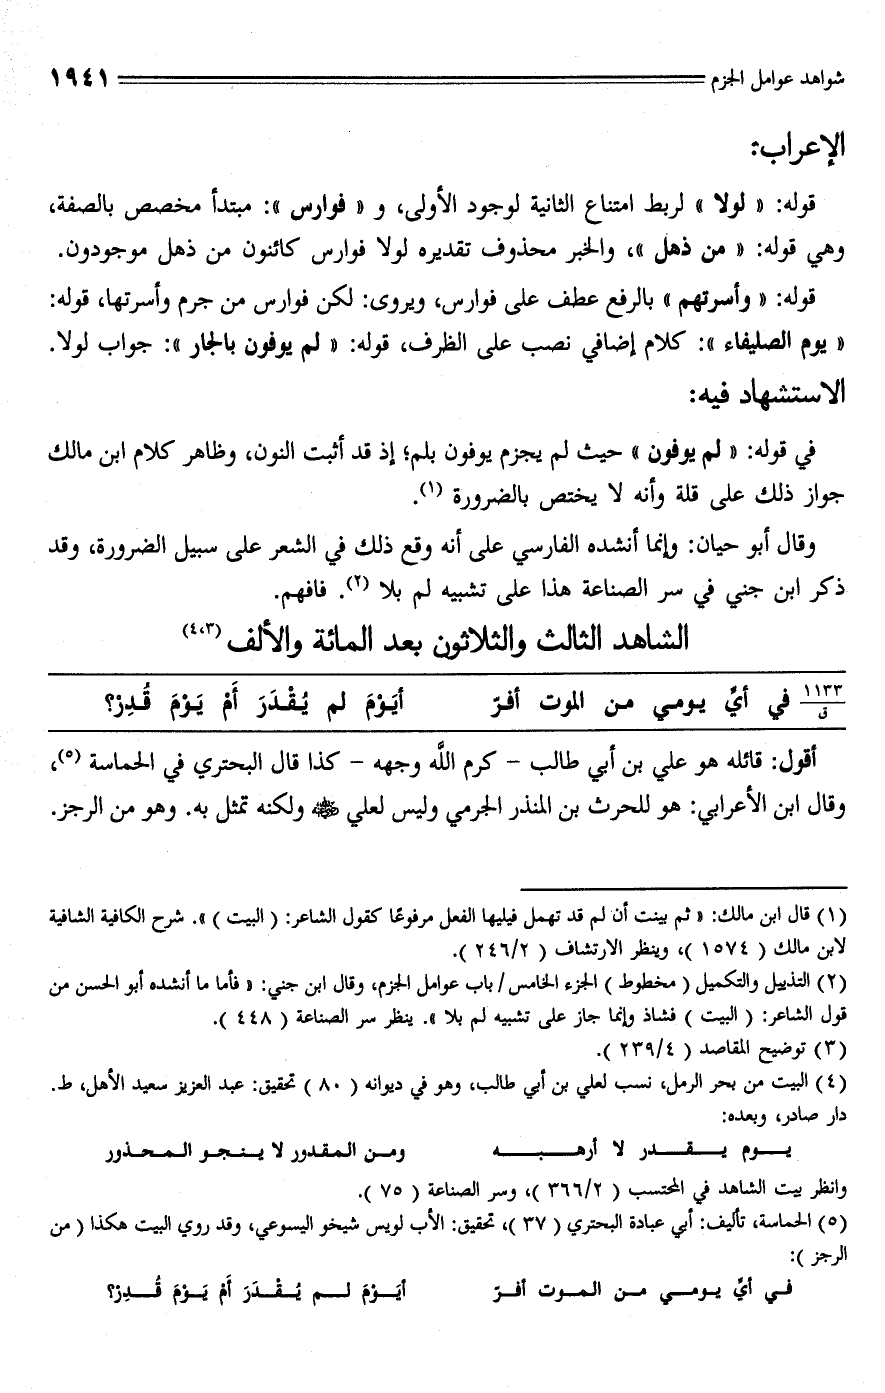 شواهد عوامل الجزم ١٩٤١
الإعراب:
قوله: « لولا » لربط امتناع الثانية لوجود الأولى، و « فوارس »: مبتدأ مخصص بالصفة،
وهي قوله: « من ذهل »، والخبر محذوف تقديره لولا فوارس كائنون من ذهل موجودون.
قوله: « وأسرتهم » بالرفع عطف على فوارس، ويروى: لكن فوارس من جرم وأسرتها، قوله:
« يوم الصليفاء »: كلام إضافي نصب على الظرف، قوله: « لم يوفون بالجار »: جواب لولا.
الاستشهاد فيه:
في قوله: « لم يوفون » حيث لم يجزم يوفون بلم؛ إذ قد أثبت النون، وظاهر كلام ابن مالك
جواز ذلك على قلة وأنه لا يختص بالضرورة (١).
وقال أبو حيان: وإنما أنشده الفارسي على أنه وقع ذلك في الشعر على سبيل الضرورة، وقد
ذكر ابن جني في سر الصناعة هذا على تشبيه لم بلا (٢). فافهم.
الشاهد الثالث والثلاثون بعد المائة والألف (٤،٣)
١١٣٣/ق في أيِّ يومي من الموت أفرّ أيَوْمَ لم يُقْدَرَ أَمْ يَوْمَ قُدِرْ؟
أقول: قائله هو علي بن أبي طالب - كرم اللَّه وجهه - كذا قال البحتري في الحماسة (٥)،
وقال ابن الأعرابي: هو للحرث بن المنذر الجرمي وليس لعلي ﷺ ولكنه تمثل به. وهو من الرجز.
(١) قال ابن مالك: « ثم بينت أن لم قد تهمل فيليها الفعل مرفوعًا كقول الشاعر: ( البيت ) ». شرح الكافية الشافية
لابن مالك ( ١٥٧٤ )، وينظر الارتشاف ( ٢٤٦/٢ ).
(٢) التذييل والتكميل ( مخطوط ) الجزء الخامس / باب عوامل الجزم، وقال ابن جني: « فأما ما أنشده أبو الحسن من
قول الشاعر: ( البيت ) فشاذ وإنما جاز على تشبيه لم بلا ». ينظر سر الصناعة ( ٤٤٨ ).
(٣) توضيح المقاصد ( ٢٣٩/٤ ).
(٤) البيت من بحر الرمل، نسب لعلي بن أبي طالب، وهو في ديوانه ( ٨٠ ) تحقيق: عبد العزيز سعيد الأهل، ط.
دار صادر، وبعده:
يــوم يــقــدر لا أرهــبــه ومـن المـقدور لا يـنـجـو المـحذور
وانظر بيت الشاهد في المحتسب ( ٣٦٦/٢ )، وسر الصناعة ( ٧٥ ).
(٥) الحماسة، تأليف: أبي عبادة البحتري ( ٣٧ )، تحقيق: الأب لويس شيخو اليسوعي، وقد روي البيت هكذا ( من
الرجز ):
فـي أيِّ يـومـي مـن المـوت أفـرّ أيَـوْمَ لـم يُـقْـدَرَ أَمْ يَـوْمَ قُـدِرْ؟